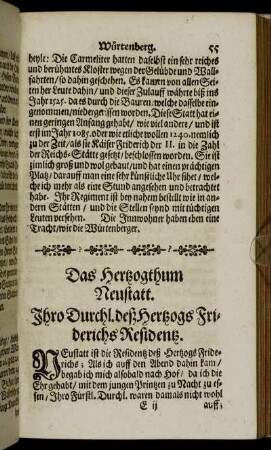 Würtenberg. 55
heyle: Die Carmeliter hatten daselbst ein sehr reiches
und berühmtes Kloster wegen der Gelübde und Wall-
fahrten/ so dahin geschehen. Es kamen von allen Sei-
ten her Leute dahin/ und dieser Zulauff währte biß ins
Jahr 1525. da es durch die Bauren/ welche dasselbe ein-
genommen/ niedergerissen worden. Diese Statt hat ei-
nen geringen Anfang gehabt/ wie viel andere/ und ist
erst im Jahr 1085. oder wie etliche wollen 1240. nemlich
zu der Zeit/ als sie Käiser Friderich der II. in die Zahl
der Reichs-Stätte gesetzt/ beschlossen worden. Sie ist
zimlich groß und wol gebaut/ und hat einen prächtigen
Platz/ darauff man eine sehr künstliche Uhr sihet/ wel-
che ich mehr als eine Stund angesehen und betrachtet
habe. Ihr Regiment ist bey nahem bestellt wie in an-
dern Stätten/ und die Stellen synd mit tüchtigen
Leuten versehen. Die Innwohner haben eben eine
Tracht/ wie die Würtenberger.
Das Hertzogthum
Neustatt.
Ihro Durchl. deß Hertzogs Fri-
derichs Residentz.
NEustatt ist die Residentz deß Hertzogs Fride-
richs; Als ich auff den Abend dahin kam/
begab ich mich alsobald nach Hof/ da ich die
Ehr gehabt/ mit dem jungen Printzen zu Nacht zu es-
sen/ Ihro Fürstl. Durchl. waren damals nicht wohl
E ij auff;